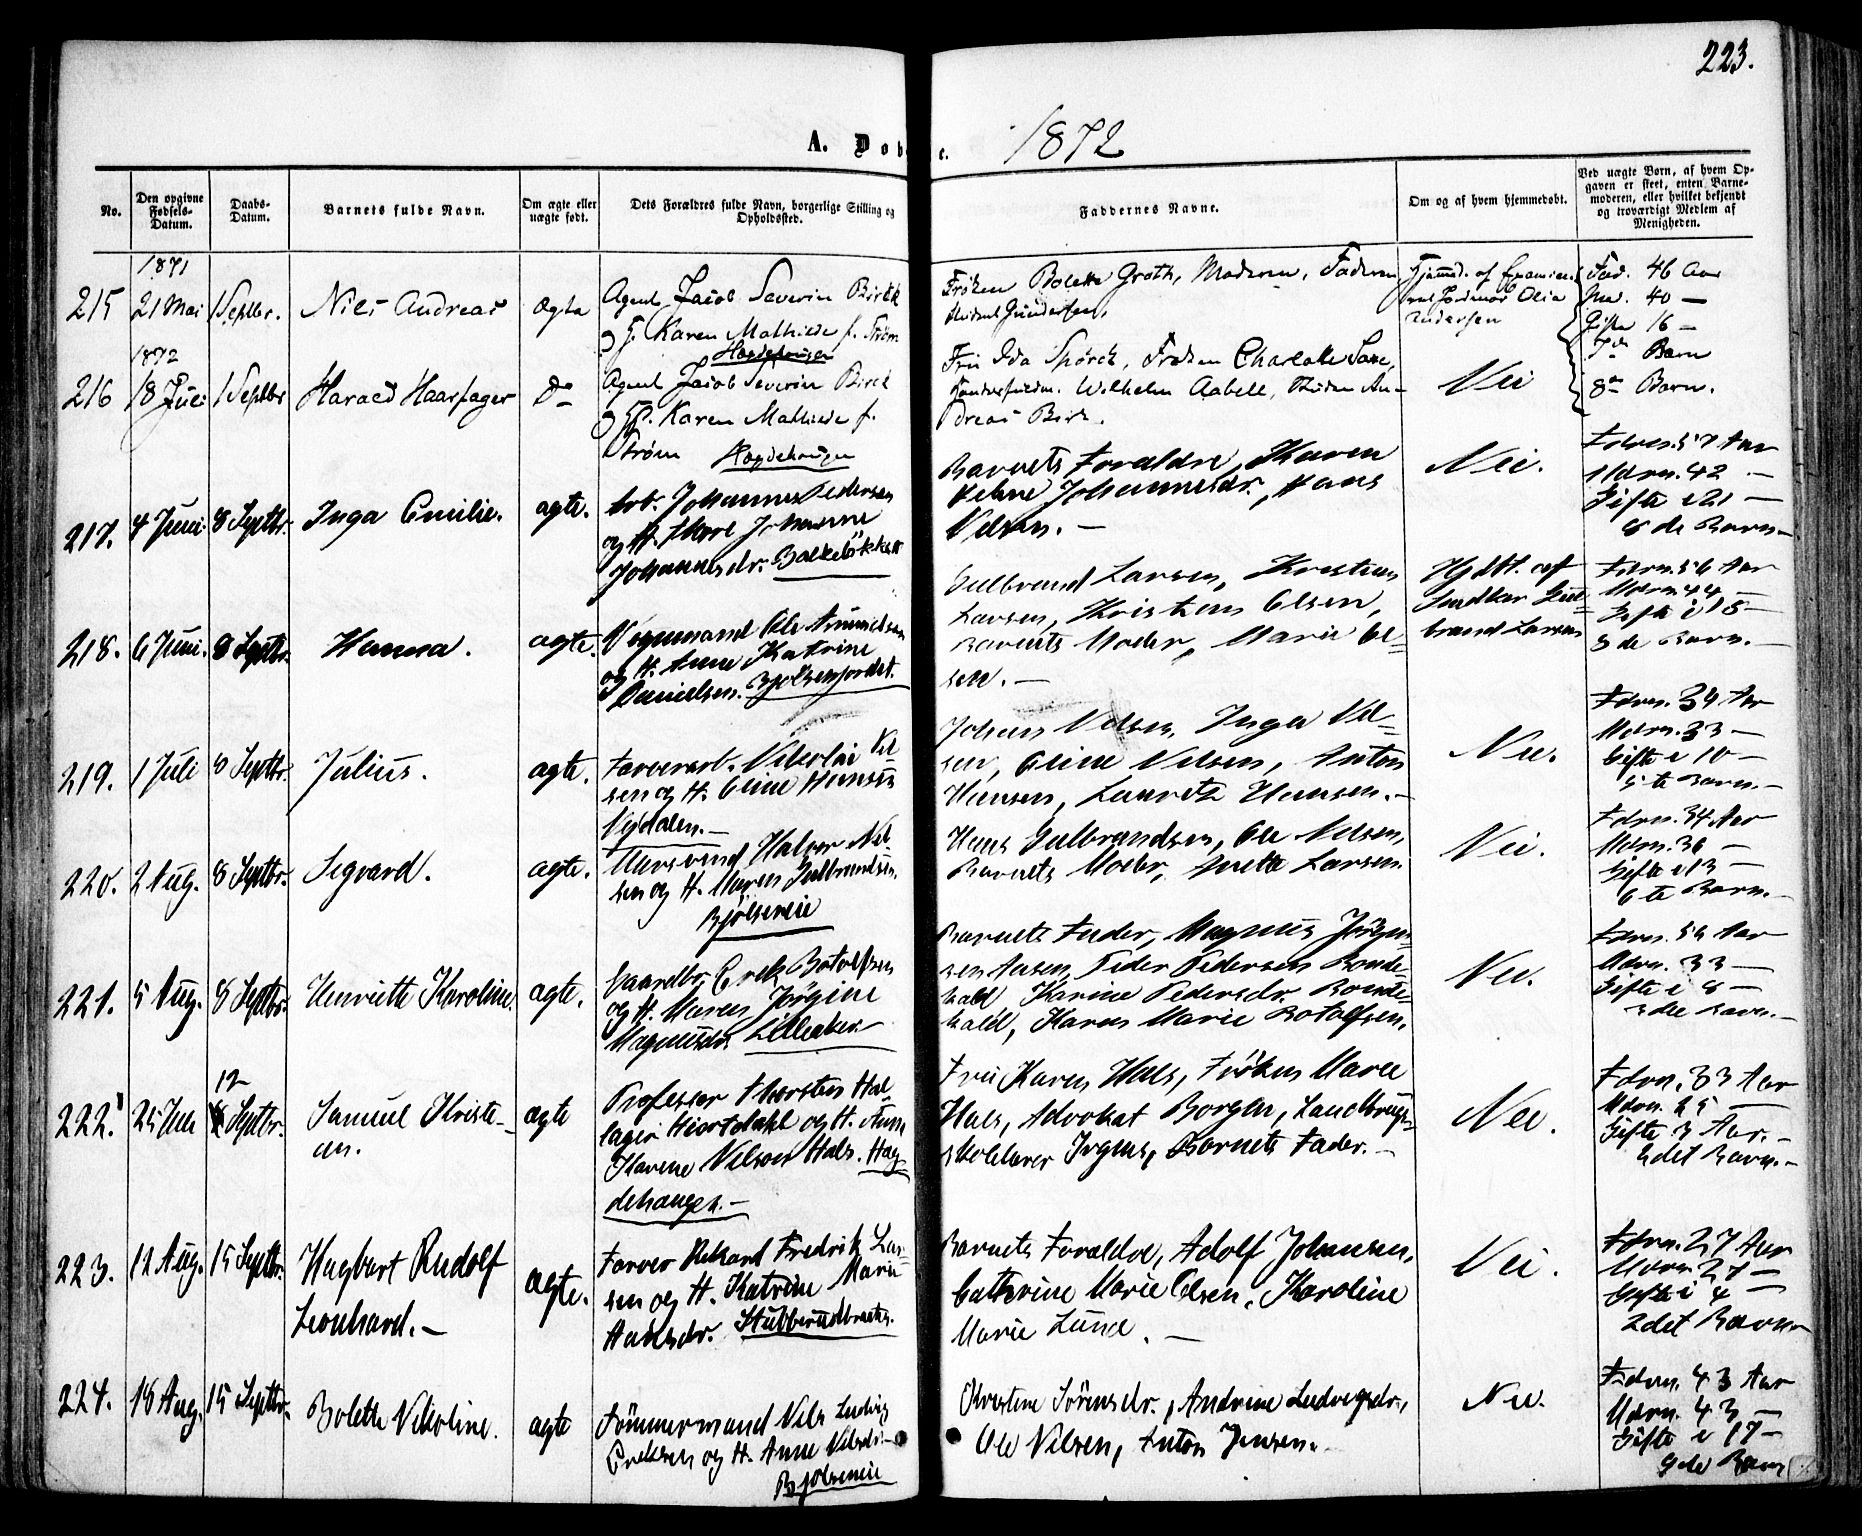 223.
A. Døbte.
1872
No.
Den opgivne Fødsels-Datum.
Daabs-Datum.
Barnets fulde Navn.
Om ægte eller uægte født.
Dets Forældres fulde Navn, borgerlige Stilling og Opholdssted.
Faddernes Navne.
Om og af hvem hjemmedøbt.
Ved uægte Børn, af hvem Op-
gaven er skeet, enten Barne-
moderen, eller hvilket bekjendt
og troværdigt Medlem af
Menigheden.
1871
215 21 Mai 1 Septbr. Niels Andreas Ægte
Agent Jacob Severin Birch
Karen Mathilde f. Strøm
Hægdehaugen
Frøken Bolette Groth, Moderen, Faderen
Student Gundersen,
Hjemmed. af
Jordmor Olia
Andersen
Fad. 46 Aar
Mo. 40 —
Gifte 16 —
7de Barn
1872
216 18 Juli 1 Septbr Harald Haarfager Do
Agent Jacob Severin Birch
Karen Mathilde f.
Strøm Hægdehaugen
Fru Ida Spørck, Frøken Charlotte
Wilhelm Aabell, Student An-
dreas Birch.
Nei
8de Barn.
217. 4 Juni. 8 Septbr. Inga Emilie. ægte.
Arb. Johannes Pedersen
og H. Johanne
Johannesdr. Balkeløkken
Barnets Forældre, Karen
Johannesdr., Hans
Nelsen. —
Nei.
Fdrn. 57 Aar
Mdrn. 42 —
Gifte i 21 —
8de Barn —
218. 6 Juni. 8 Septbr. Hanna. ægte.
Vognmand Ole Amundsen
og H. Anne Katrine
Danielsen. Bjølsenjordet.
Gulbrand Larsen, Kristian
Larsen, Kristian Olsen,
Barnets Moder, Marie Ol-
sen. —
Hjdbt. af
Snedker Gul-
brand Larsen
Fdrn. 56 Aar
Mdrn. 44 —
Gifte i 15 —
3de Barn. —
219. 1 Juli 8 Septbr. Julius. ægte.
Farverarb. Nikolai Nel-
sen og H. Eline Hansen
Vejdalen. —
Johan Nelsen, Inga Nel-
sen, Eline Nelsen, Anton
Hansen, Lauritz Hansen. —
Nei.
Fdrn. 34 Aar
Mdrn. 33 —
Gifte i 10 —
5te Barn. —
220. 2 Aug. 8 Septbr. Sigvard. ægte.
Mursvend Halvor Nel-
sen og H. Maren Gulbrandsen.
Bjølseneie
Hans Gulbrandsen, Ole Nelsen,
Barnets Moder, Larsen.
Nei.
Fdrn. 34 Aar
Mdrn. 36 —
Gifte i 13 —
6te Barn. —
221. 5 Aug. 8 Septbr. Henriette Karoline. ægte.
Gaardbr. Erik Botolfsen
og H. Maren Jørgine
Magnusdr. Lilleaker. —
Barnets Fader, Magnus Jørgen-
sen Aasen, Peder Pedersen
Karine Pedersdr.
Karen Marie Botolfsen.
Nei.
Fdrn. 54 Aar
Mdrn. 33 —
Gifte i 8 —
Barn. —
222. 25 Juni 12 Septbr. Samuel Kristi-
an. ægte
Professor Thorsten Hal-
lager Hiortdahl og H. Anna
Karine Nelson Hals. Hæg-
dehaugen. —
Fru Karen Hals, Frøken Marie
Hals, Advokat Borgen, Landbrugs-
skolelærer Irgens, Barnets Fader. —
Nei.
Fdrn. 33 Aar
Mdrn. 25 —
Gifte 3 Aar. —
2det Barn. —
223. 12 Aug. 15 Septbr. Hagbart Rudolf
Leonhard. — ægte.
Farver Rikard Fredrik Lar-
sen og H. Katrine Marie
Andersdr. Stubberudbraaten.
Barnets Forældre, Adolf Johansen,
Cathrine Marie Olsen, Karoline
Marie Lund. —
Nei.
Fdrn. 27 Aar
Mdrn. 27 —
Gifte i 4 —
2det Barn —
224. 18 Aug. 15 Septbr. Bolette Nikoline. ægte
Tømmermand Nils Ludvig
Eriksen og H. Anne Nilsdr. —
Bjølseneie
Kristine Sørensdr., Andrine Ludvigsdr.,
Ole Nilsen, Anton Jensen. —
Nei.
Fdrn. 43 Aar
Mdrn. 43 —
Gifte i 17 —
9de Barn